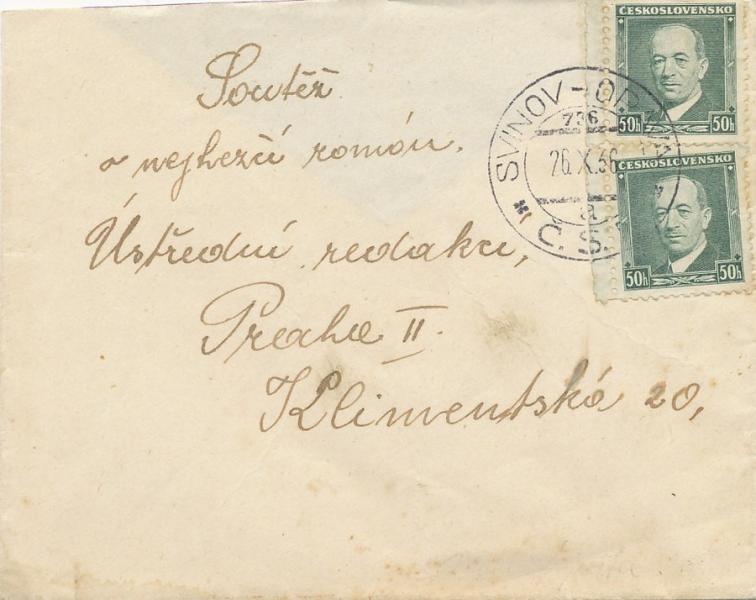 ČESKOSLOVENSKO
50h 50h
ČESKOSLOVENSKO
50h 50h
SVINOV
736
26.X.36
a
Č.S.
Soutěž
o nejhezčí román.
Ústřední redakci,
Praha II.
Klimentská 20,